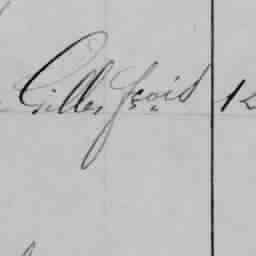 Gilles fçois 12